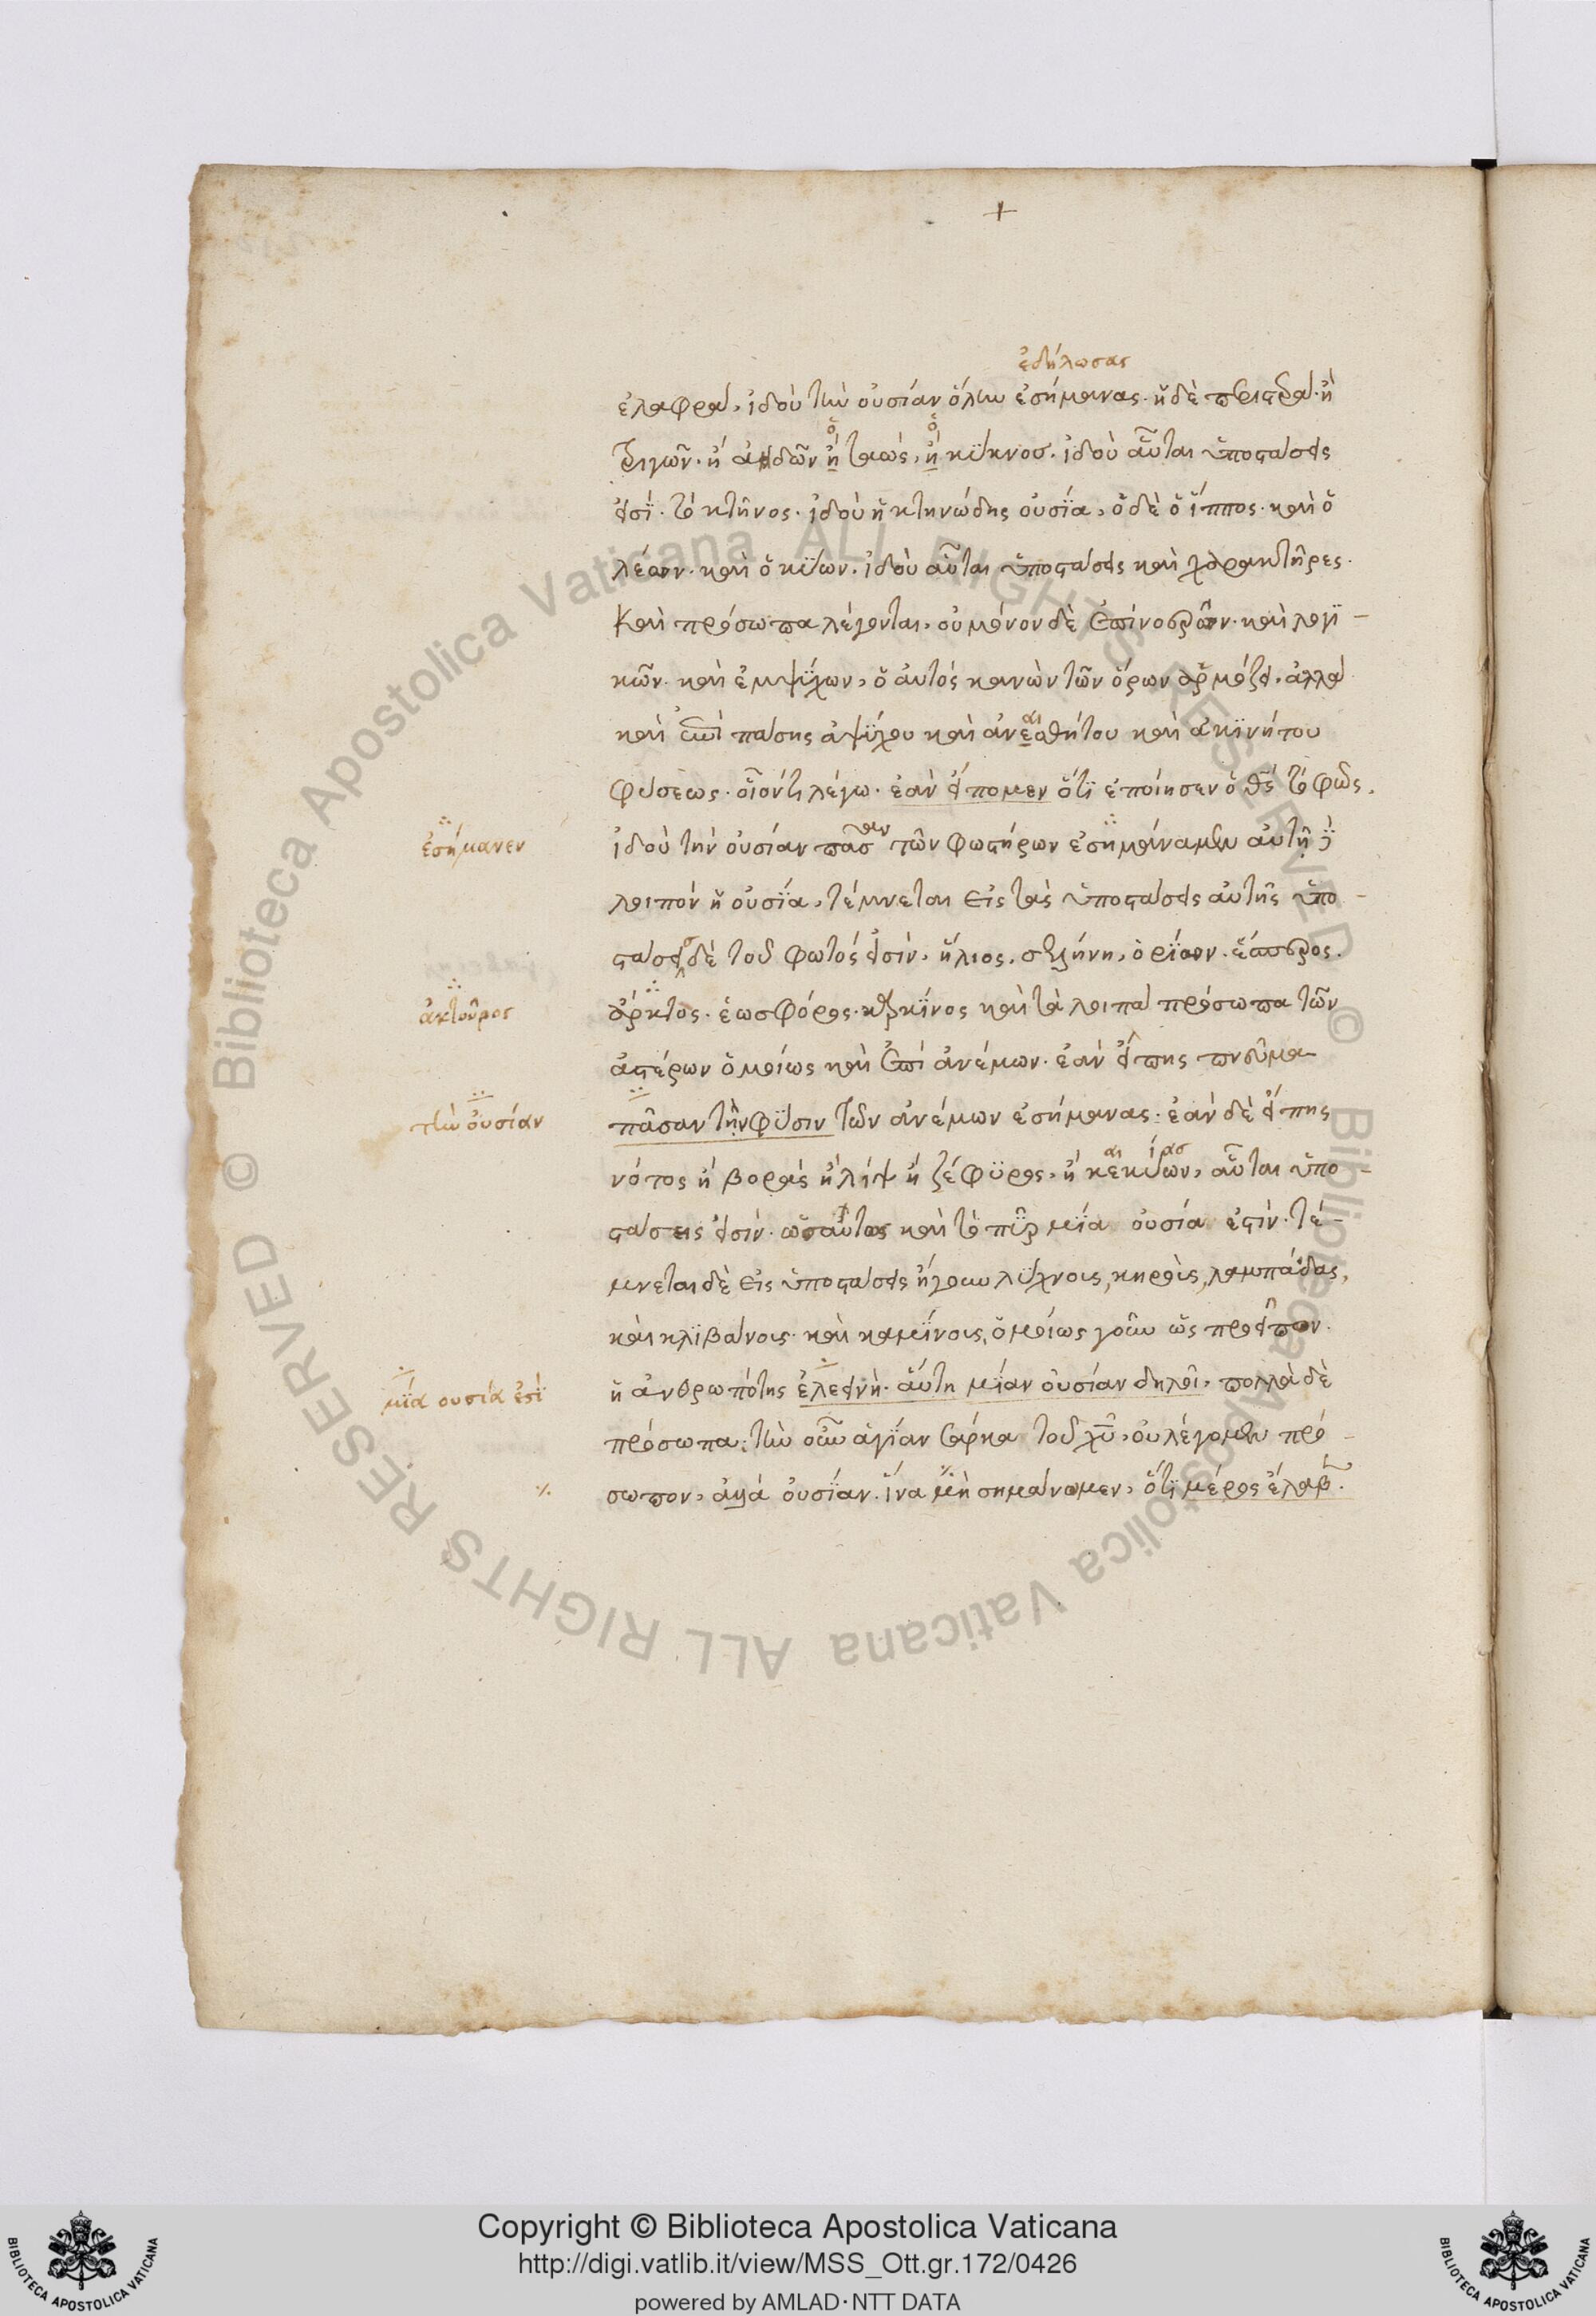 +
ἐδήλωσας
ἐλαφρά, ἰδοὺ τὴν οὐσίαν ὅλην ἐσήμανας. ἡ δὲ περιστερὰ. ἢ
τρυγῶν. ἢ ἀηδῶν ἢ ταὼς, ἢ κύκνοσ. ἰδοὺ αὗται ὑποστάσεις
εἰσί. τὸ κτῆνος. ἰδοὺ ἡ κτηνώδης οὐσία, ὁ δὲ ὁ ἵππος. καὶ ὁ
λέων. καὶ ὁ κύων. ἰδοὺ αὗται ὑποστάσεις καὶ χαρακτῆρες.
Καὶ πρόσωπα λέγονται, οὐ μόνον δὲ ἐπὶ νοερῶν. καὶ λογι-
κῶν. καὶ ἐμψύχων, ὁ αὐτὸς κανὼν τῶν ὅρων ἁρμόζει. ἀλλὰ
καὶ ἐπὶ πάσης ἀψύχου καὶ ἀνεσθήτου καὶ ἀκινήτου
αι
φύσεως. οἷόν τι λέγω. ἐὰν εἴπομεν ὅτι ἐποίησεν ὁ θς τὸ φῶς.
ἐσήμανεν
ἰδοὺ τὴν οὐσίαν πασ τῶν φωστήρων ἐσημάναμεν αὐτὴ
λοιπὸν ἡ οὐσία, τέμνεται εἰς τὰς ὑποστάσεις αὐτῆς ὑπο-
στάσεις δὲ τοῦ φωτός εἰσὶν. ἥλιος. σελήνη. ὀρίων. ἕσπερος.
ἀκτοῦρος
ἄρκτος. ἑωσφόρος. καρκίνος καὶ τὰ λοιπὰ πρόσωπα τῶν
ἀστέρων ὁμοίως καὶ ἐπὶ ἀνέμων. ἐὰν εἴπης πνεῦμα
τὴν οὐσίαν
πᾶσαν τὴν φύσιν τῶν ἀνέμων ἐσήμανας. ἐὰν δὲ εἴπης
νότος ἢ βορὰς ἢ λίψ ἢ ζέφυρος. ἢ κεκίων, αὗται ὑπο-
αι ίασ
στάσεις εἰσίν. ὡσαύτως καὶ τὸ πῦρ μία οὐσία ἐστίν. τέ-
μνεται δὲ εἰς ὑποστάσεις ἤγουν λύχνοις, κηροὶς, λαμπάδας,
καὶ κλιβάνοις. καὶ καμίνοις, ὁμοίως γοῦν ὡς προεῖπον.
μία ουσία ἐστὶ
ἡ ἀνθρωπότης ἐλεεινὴ. αὕτη μίαν οὐσίαν δηλοῖ, πολλὰ δὲ
πρόσωπα. τὴν οὖν ἁγίαν σάρκα τοῦ χῦ, οὐ λέγομεν πρό-
σωπον, ἀλλὰ οὐσίαν. ἵνα μὴ σημάνομεν, ὅτι μέρος ἔλαβ.
Copyright © Biblioteca Apostolica Vaticana
http://digi.vatlib.it/view/MSS_Ott.gr.172/0426
powered by AMLAD·NTT DATA